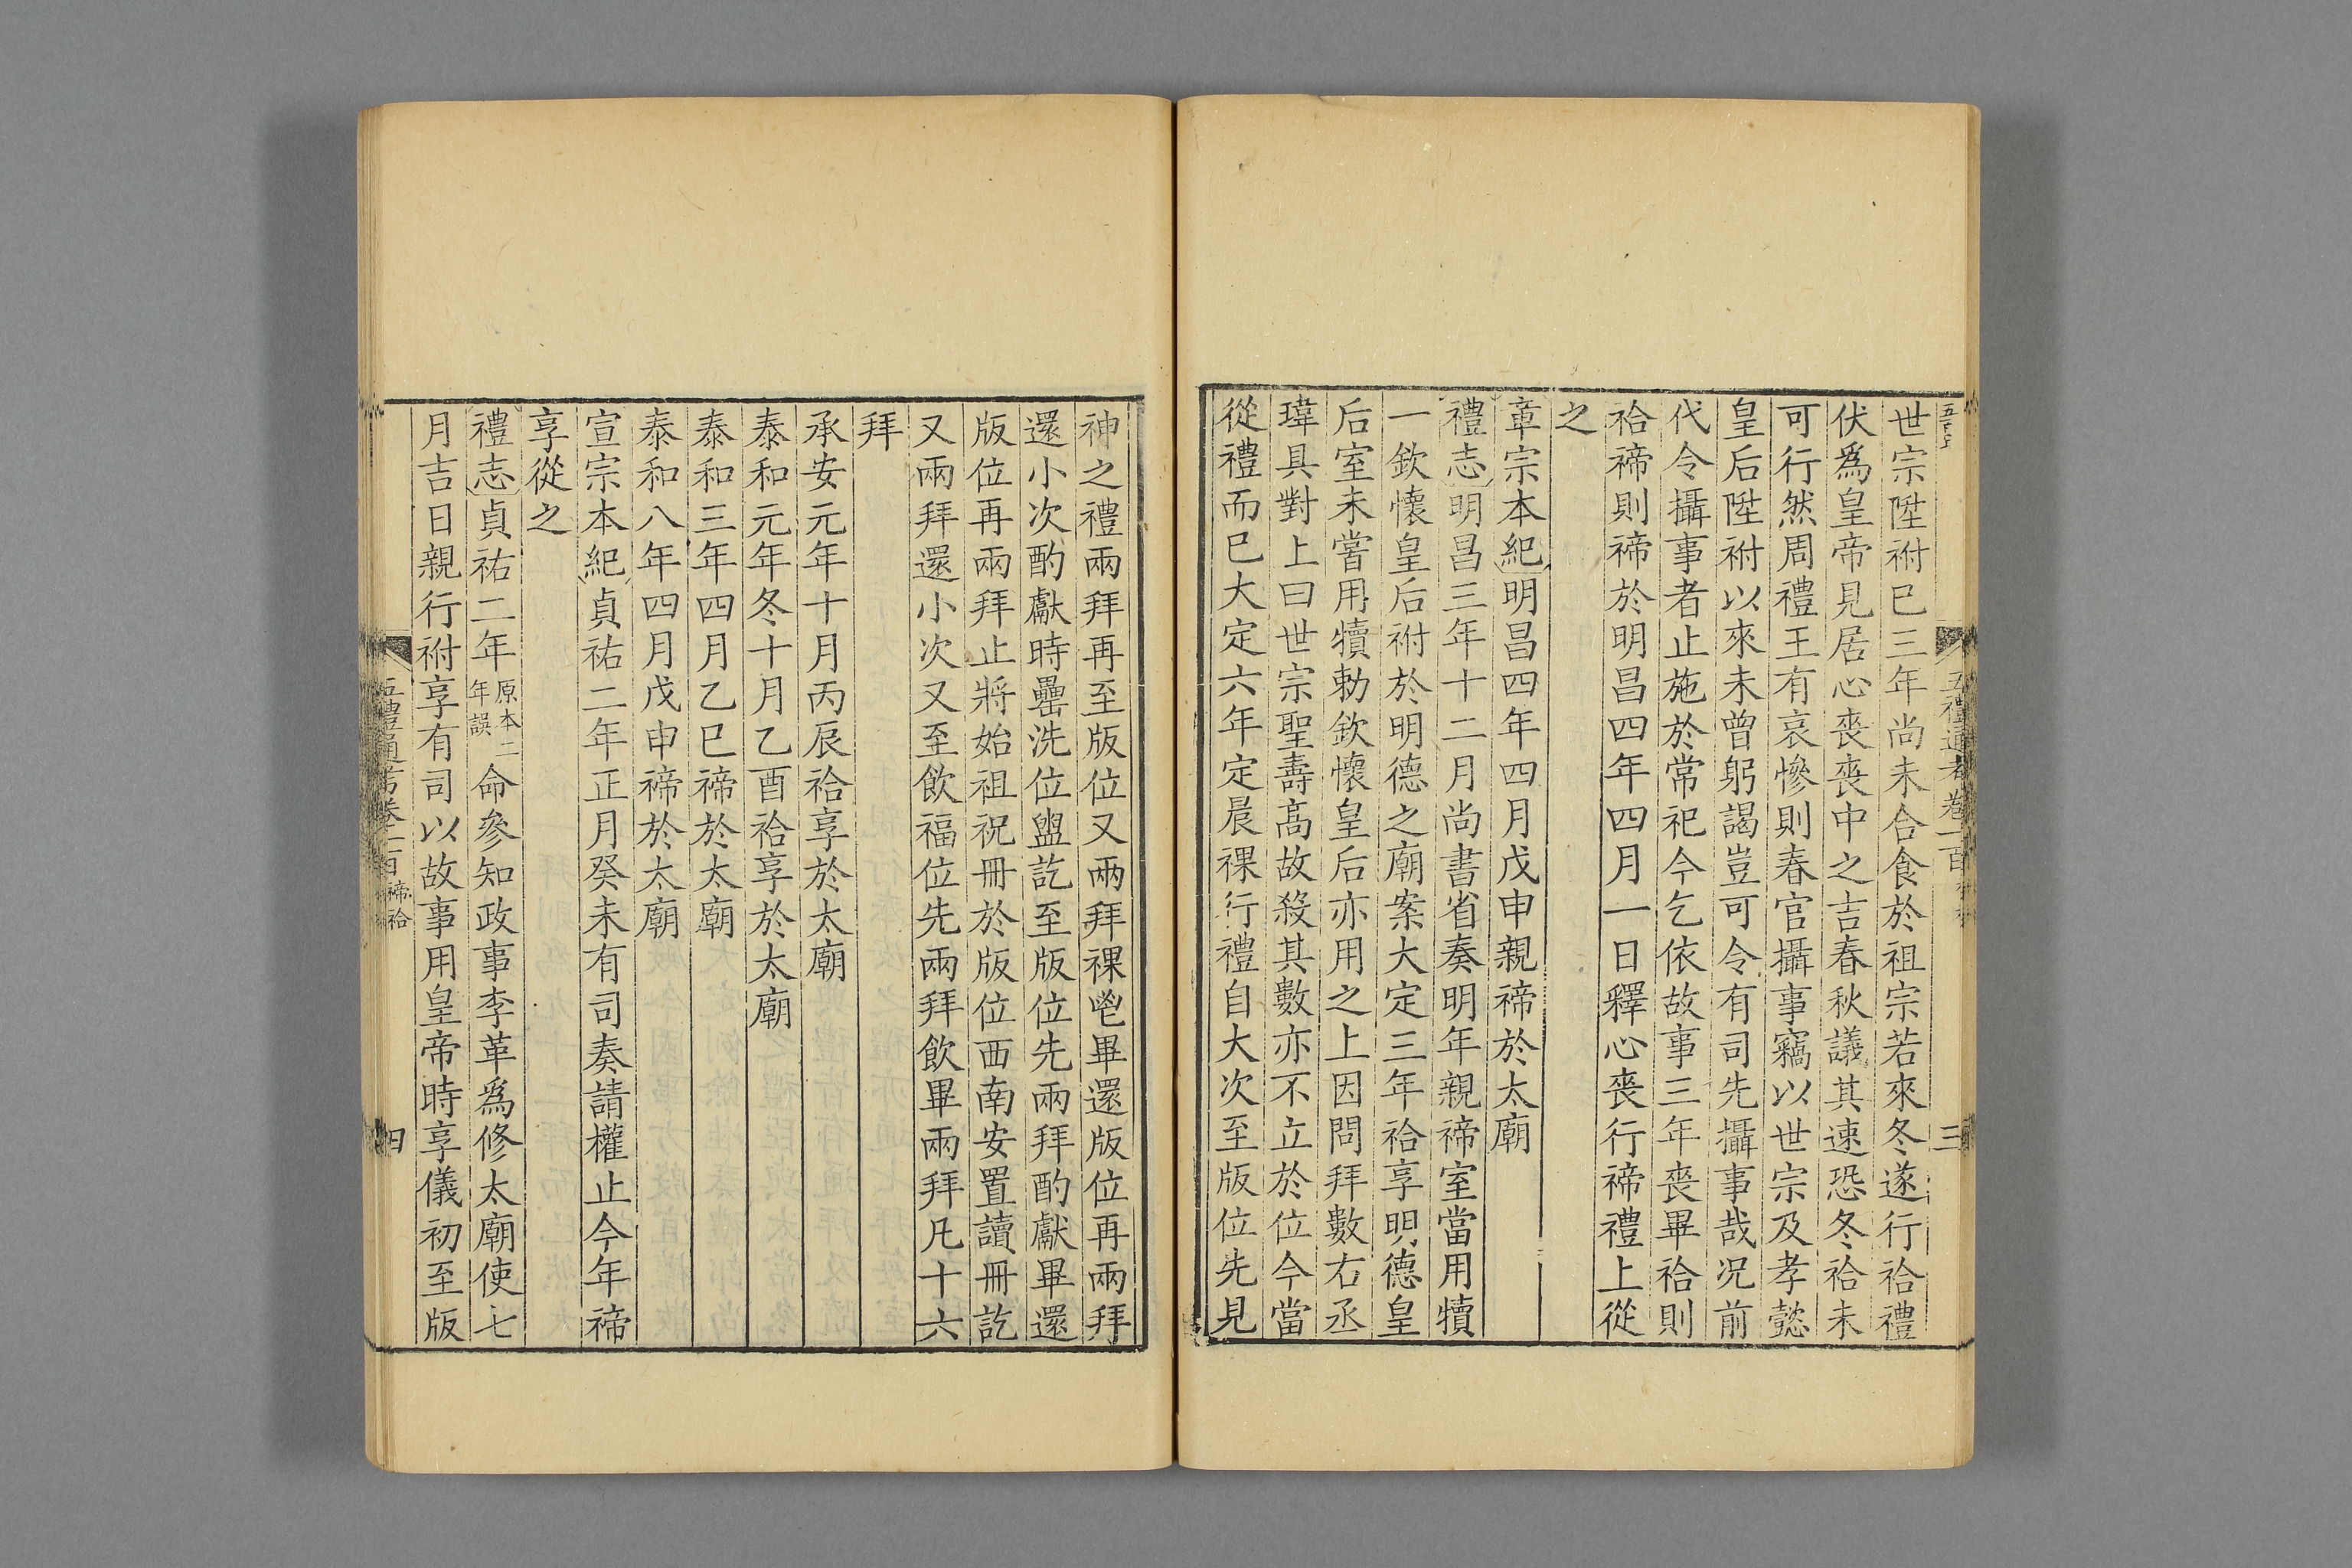 五禮通考卷一百
三
世宗陞祔已三年尚未合食於祖宗若來冬遂行祫禮
伏爲皇帝見居心喪喪中之吉春秋議其速恐冬祫未
可行然周禮王有哀慘則春官攝事竊以世宗及孝懿
皇后陞祔以來未曾躬謁豈可令有司先攝事哉況前
代令攝事者止施於常祀今乞依故事三年喪畢祫則
祫禘則禘於明昌四年四月一日釋心喪行禘禮上從
之
章宗本紀明昌四年四月戊申親禘於太廟
禮志明昌三年十二月尚書省奏明年親禘室當用犢
一欽懷皇后祔於明德之廟案大定三年祫享明德皇
后室未嘗用犢勑欽懷皇后亦用之上因問拜數右丞
瑋具對上曰世宗聖壽高故殺其數亦不立於位今當
從禮而已大定六年定晨祼行禮自大次至版位先見
神之禮兩拜再至版位又兩拜祼鬯畢還版位再兩拜
還小次酌獻時罍洗位盥訖至版位先兩拜酌獻畢還
版位再兩拜止將始祖祝冊於版位西南安置讀冊訖
又兩拜還小次又至飲福位先兩拜飲畢兩拜凡十六
拜
承安元年十月丙辰祫享於太廟
泰和元年冬十月乙酉祫享於太廟
泰和三年四月乙巳禘於太廟
泰和八年四月戊申禘於太廟
宣宗本紀貞祐二年正月癸未有司奏請權止今年禘
享從之
禮志貞祐二年原本二年誤命參知政事李革爲修太廟使七
月吉日親行祔享有司以故事用皇帝時享儀初至版
五禮通考卷一百禘祫
四